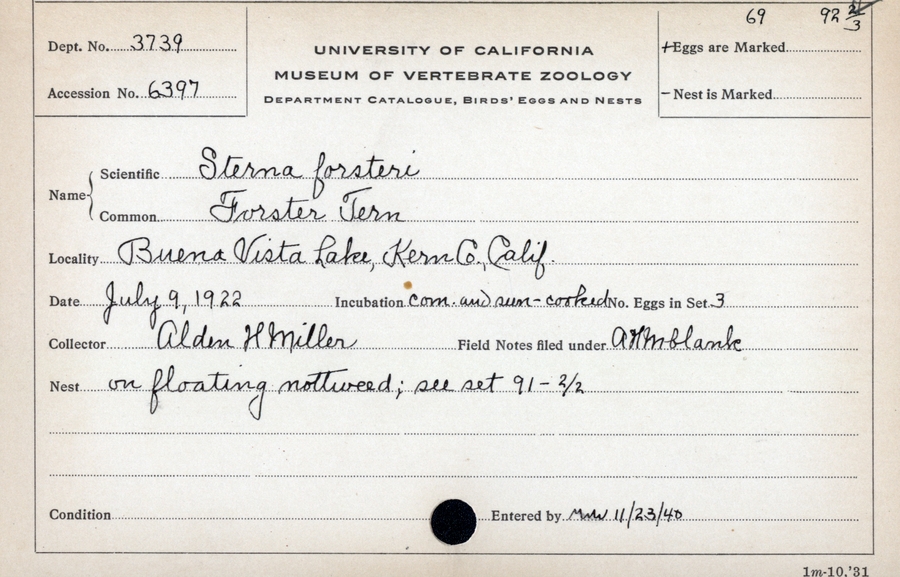 69 92 2/3
Dept. No. 3739
UNIVERSITY OF CALIFORNIA
+Eggs are Marked
MUSEUM OF VERTEBRATE ZOOLOGY
Accession No. 6397
DEPARTMENT CATALOGUE, BIRDS' EGGS AND NESTS
- Nest is Marked
Name
Scientific Sterna forsteri
Common Forster Tern
Locality Buena Vista Lake, Kern Co., Calif.
Date July 9, 1922 Incubation com. and sun-cooked No. Eggs in Set 3
Collector Alden H Miller Field Notes filed under AHM blank
Nest on floating nottweed; see set 91-2/2
Condition Entered by 11/23/40
1m-10,'31